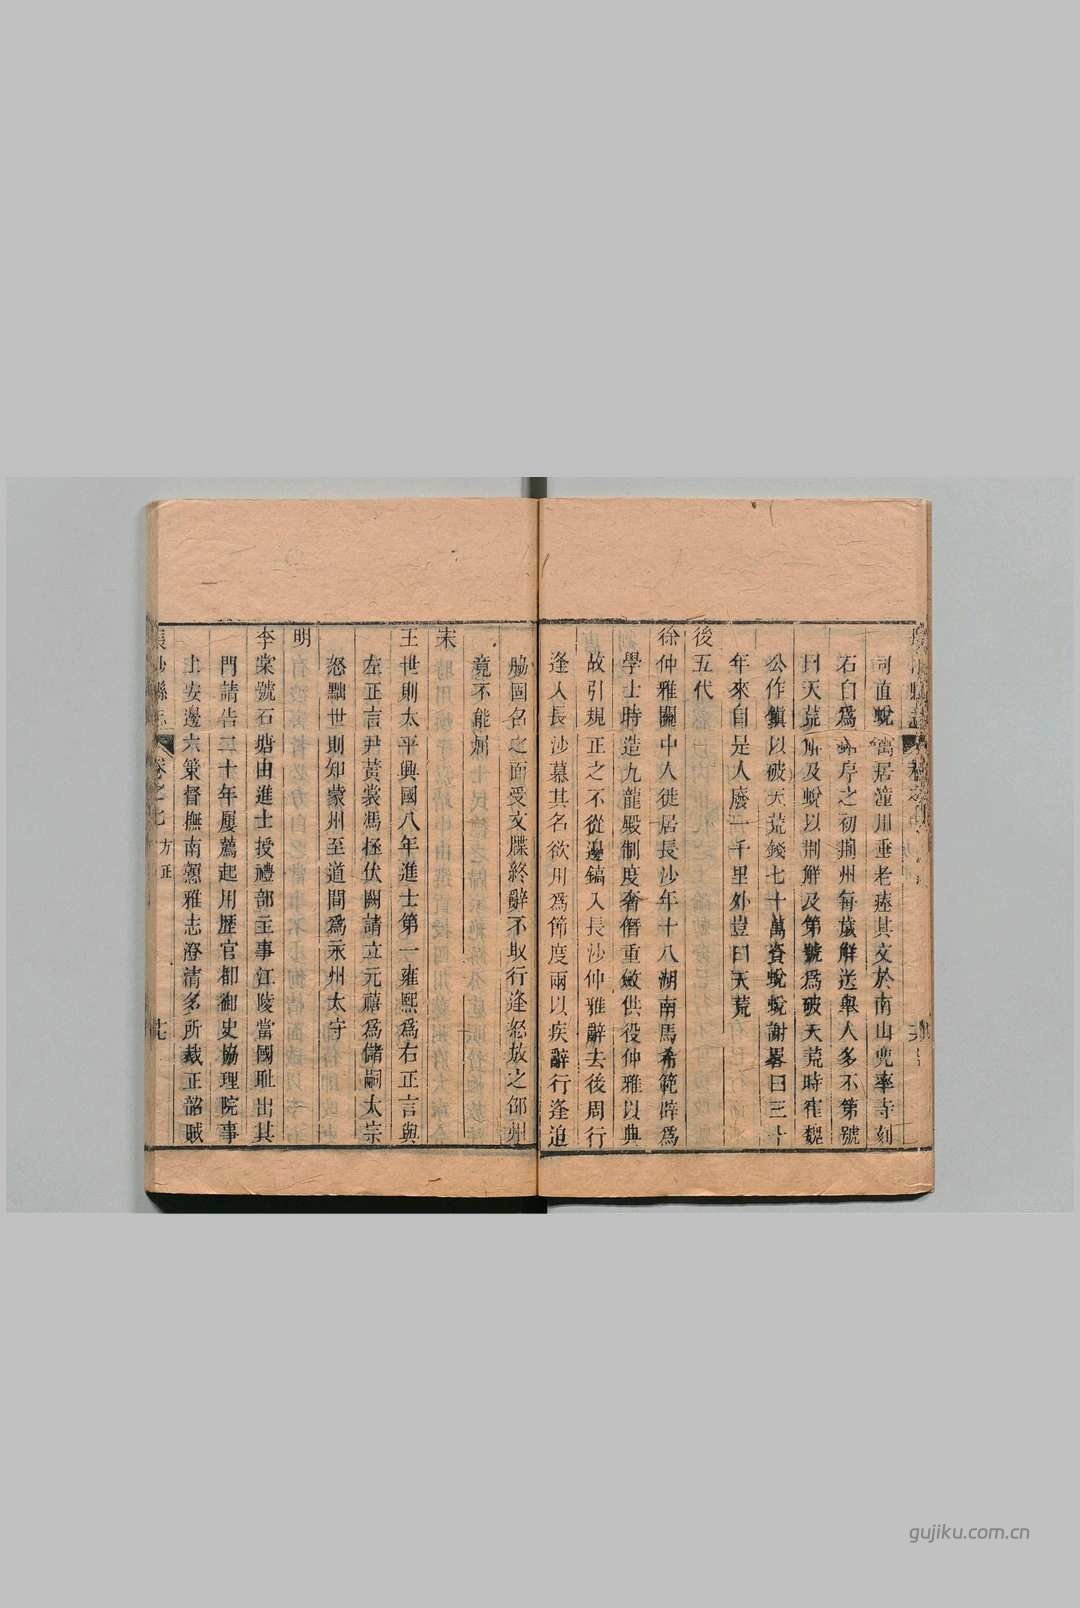 司直蛻寓居潼川垂老瘞其文於南山兜率寺刻
石自爲序之初荆州每歲觧送舉人多不第號
曰天荒觧及蛻以荆觧及第號爲破天荒時崔魏
公作鎮以破天荒錢七十萬資蛻蛻謝畧曰三十
年來自是人廢一千里外豈曰天荒
後五代
徐仲雅關中人徙居長沙年十八湖南馬希範辟爲
學士時造九龍殿制度奢僭重斂供役仲雅以典
故引規正之不從邊鎬入長沙仲雅辭去後周行
逢入長沙慕其名欲用爲節度兩以疾辭行逢迫
脇固名之面受文牒終辭不取行逢怒放之邵州
竟不能屈
宋
王世則太平興國八年進士第一雍熙爲右正言與
左正言尹黃裳馮拯伏闕請立元禧爲儲嗣太宗
怒黜世則知蒙州至道間爲永州太守
明
李棠號石塘由進士授禮部主事江陵當國恥出其
門請告二十年屢薦起用歷官都御史協理院事
上安邊六策督撫南贛雅志澄清多所裁正韶賊
長沙縣志 卷之七 方正 十七
gujiku.com.cn